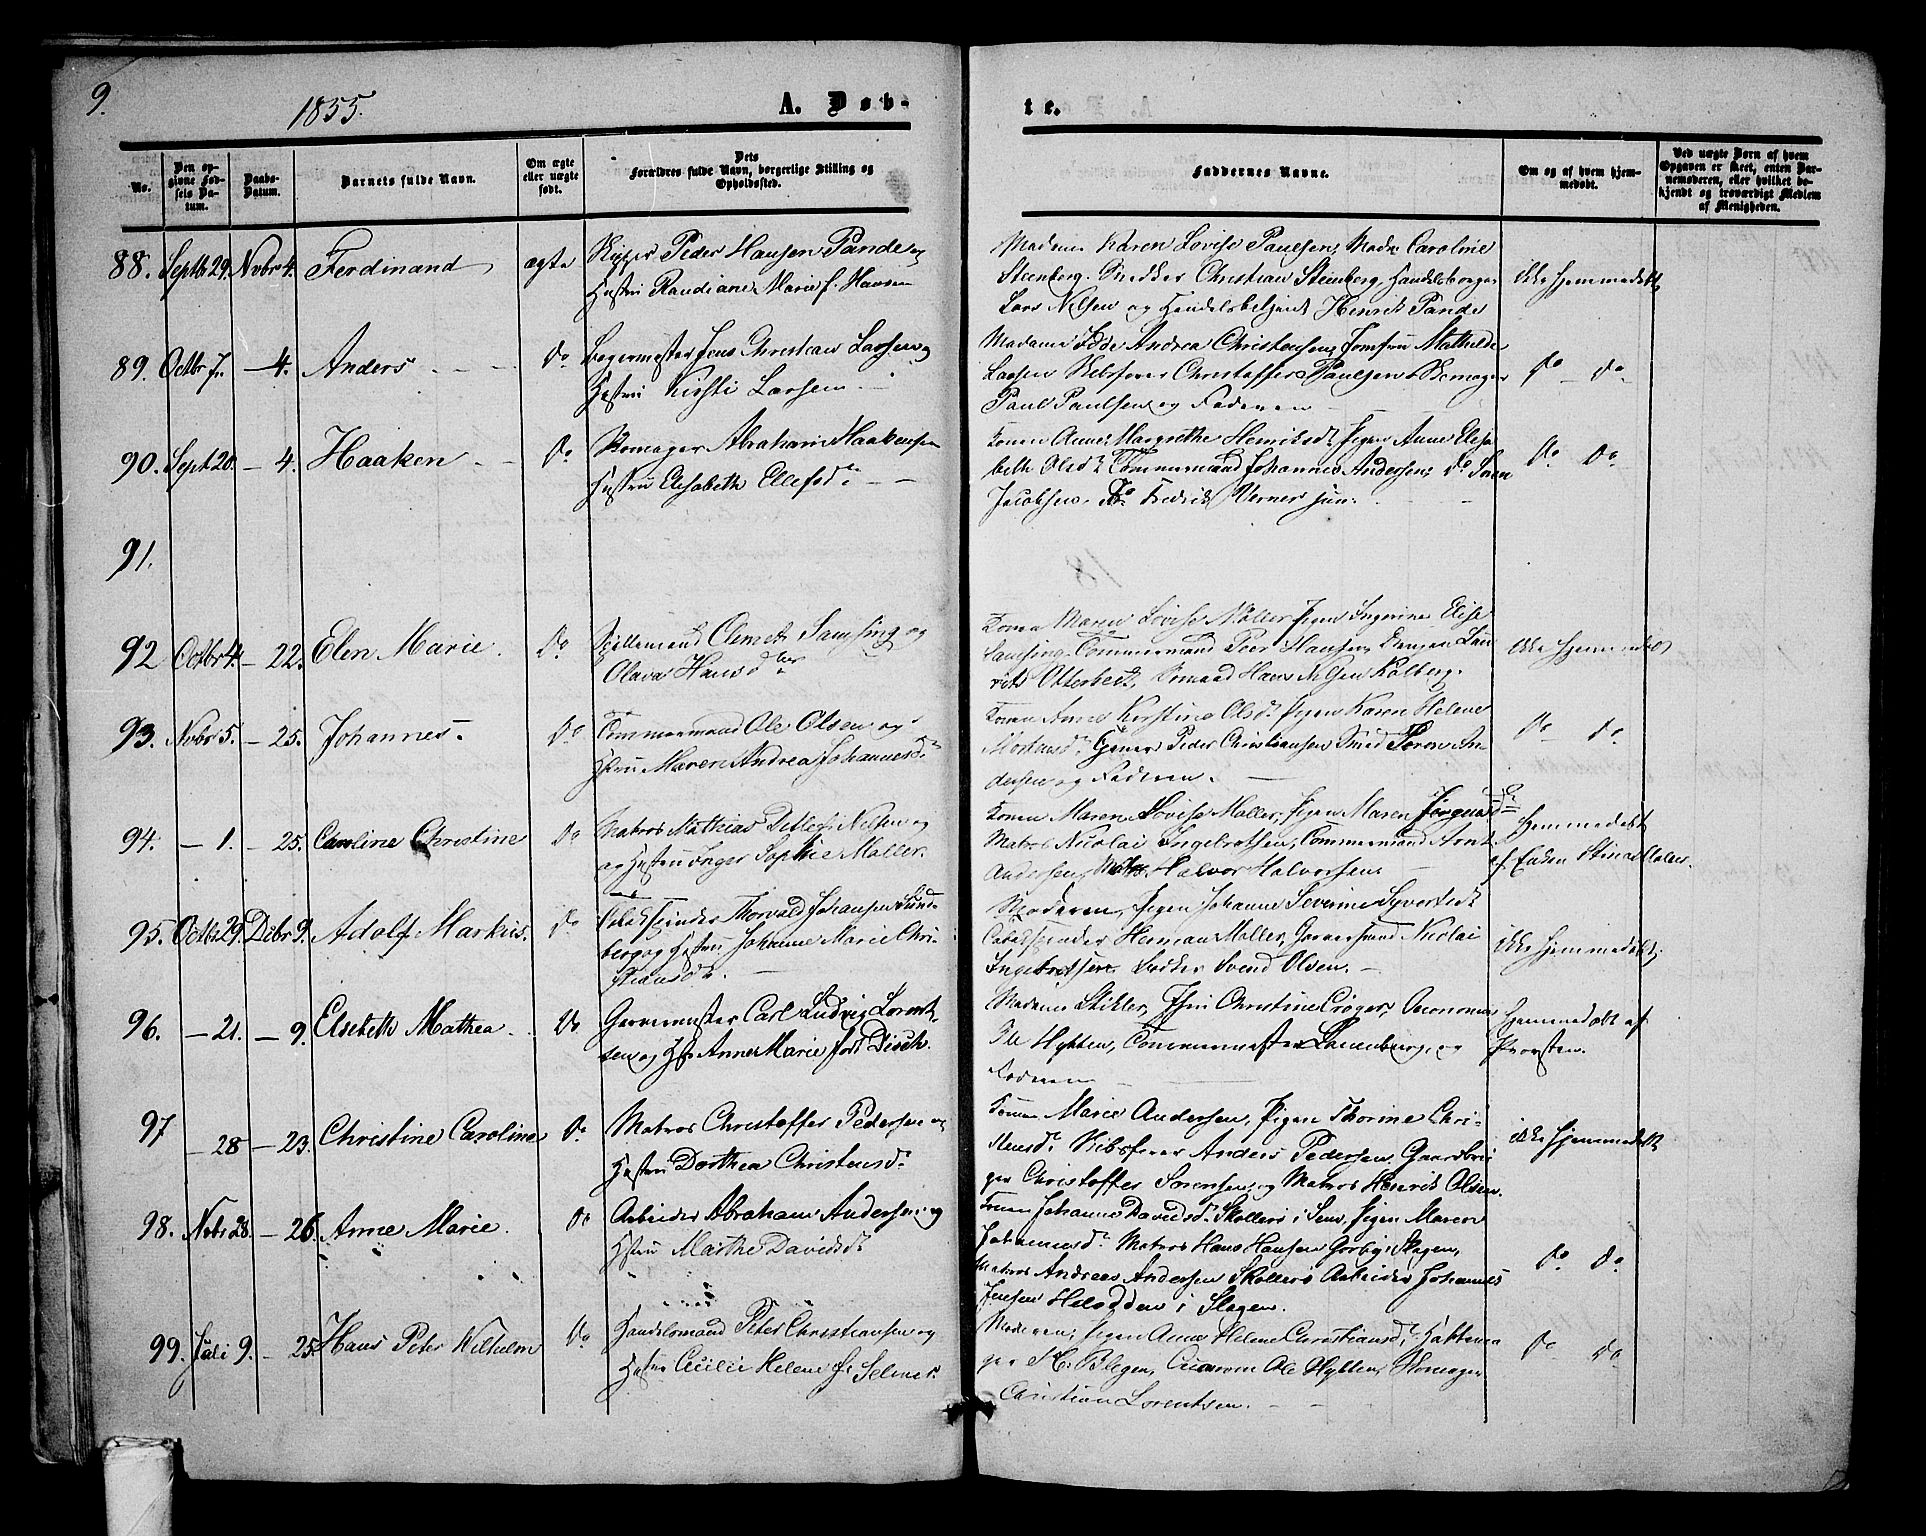 9.
1855.
A. Døb-
te.
No.
Den opgivne Fødsels Datum.
Daabs-Datum.
Barnets fulde Navn.
Om ægte eller uægte født.
Dets Forældres fulde Navn, borgerlige Stilling og Opholdssted.
Faddernes Navne.
Om og af hvem hjemmedøbt.
Ved uægte Børn af hvem Opgaven er skeet, enten Barnemoderen, eller hvilket bekjendt og troværdigt Medlem af Menigheden.
88. Septbr 29. Novbr 4. Ferdinand ægte
Skipper Peder Hansen Pande og
Hustru Randiane Marie f. Hansen
Madame Karen Lovise Paulsen, Mad. Caroline
Steenberg. Snedker Christian Steenberg, Handelsborger
Lars Nilsen og Handelsbetjent Henrik Pande
ikke hjemmedøbt
89. Octbr 7. – 4. Anders Do
Bøgermester Jens Christian Larsen og
Hustru Kirsti Larsen
Madame Andrea Christensen, Jomfru Mathilde
Larsen Skibsfører Christoffer Paulsen, Skomager
Paul Paulsen og Faderen
Do – Do
90. Sept 20. – 4. Haaken Do
Skomager Abraham Haakensen
Hustru Elisabeth Ellefsd.
Konen Anne Margrethe Henriksd. Pigen Anne Elisa-
beth Olsd. Tømmermand Johannes Andersen, Do Søren
Jacobsen. Do Fredrik Verner jun.
Do Do
91.
92 Octbr 4. – 22. Elen Marie. Do
Clemet Samsing og
Olava Hansd.
Konen Maren Lovise Møller Pigen Ingerine Elise
Samsing. Tømmermand Peer Hansen, Drengen Lau-
rits Otterbech, Sømand Hans Nilsen Kolberg.
ikke hjemmedøbt
93. Novbr 5. – 25. Johannes. Do
Tømmermand Ole Olsen og
Hstru Maren Andrea Johannesd.
Konen Anne Kirstine Olsd. Pigen Karen Helene
Mortensd. Peder Christiansen Smed Søren An-
dersen og Faderen.
Do – Do
94. – 1. – 25. Caroline Christine Do
Matros Mathias Detlef Nilsen og
og Hustru Inger Sophie Møller.
Konen Maren Lovise Møller, Pigen Maren Jørgensd.
Matros Nicolai Ingebretsen, Tømmermand Arnt
Andersen, Matros Halvor Halvorsen
Hjemmedøbt
af Enken Stine Møller.
95. Octbr 29. Debr 9. Adolf Markus. Do
Tobakspinder Thorvald Johansen Sund-
berg og Hustru Johanne Marie Chri-
stiansd.
Moderen, Pigen Johanne Severine Syvertsd.
Tobakspinder Herman Møller, Garversvend Nicolai
Ingebretsen Bødker Svend Olsen.
ikke hjemmedøbt.
96. – 21. – 9. Elsebeth Mathea. Do
Garvermester Carl Ludvig Lorent-
sen og Hst Anne Marie født Disch.
Madame Stikler, Christine Crøger, Oeconomus
Ole Hytten, og
Faderen
Hjemmedøbt af
Provsten.
97 – 28 – 23. Christine Caroline Do
Matros Christoffer Pedersen og
Hustru Dorthea Christensd.
Konen Marie Andersen, Pigen Thorine Chri-
stensd. Skibsfører Anders Pedersen. Gaardbru-
ger Christoffer Sørensen, og Matros Henrik Olsen.
ikke hjemmedøbt
98. Novbr 28. – 26. Anne Marie. Do
Arbeider Abraham Andersen og
Hstru Marthe Davidsd.
Konen Johanne Davidsd. Skallerø i Sem, Pigen Maren
Johannesd. Matros Hans Hansen Gorby Slagen,
Matros Andreas Andersen Skallerø Arbeider Johannes
Jensen Heladden i Slagen.
Do Do
99. Juli 9. – 25. Hans Peter Wilhelm Do
Handelsmand Peter Christiansen og
Hustru Cecilie Helene f. Selmer.
Moderen, Pigen Anne Helene Christiansd.
H. Blegen, Ole Hytten, Skomager
Christian Lorentsen.
Do Do